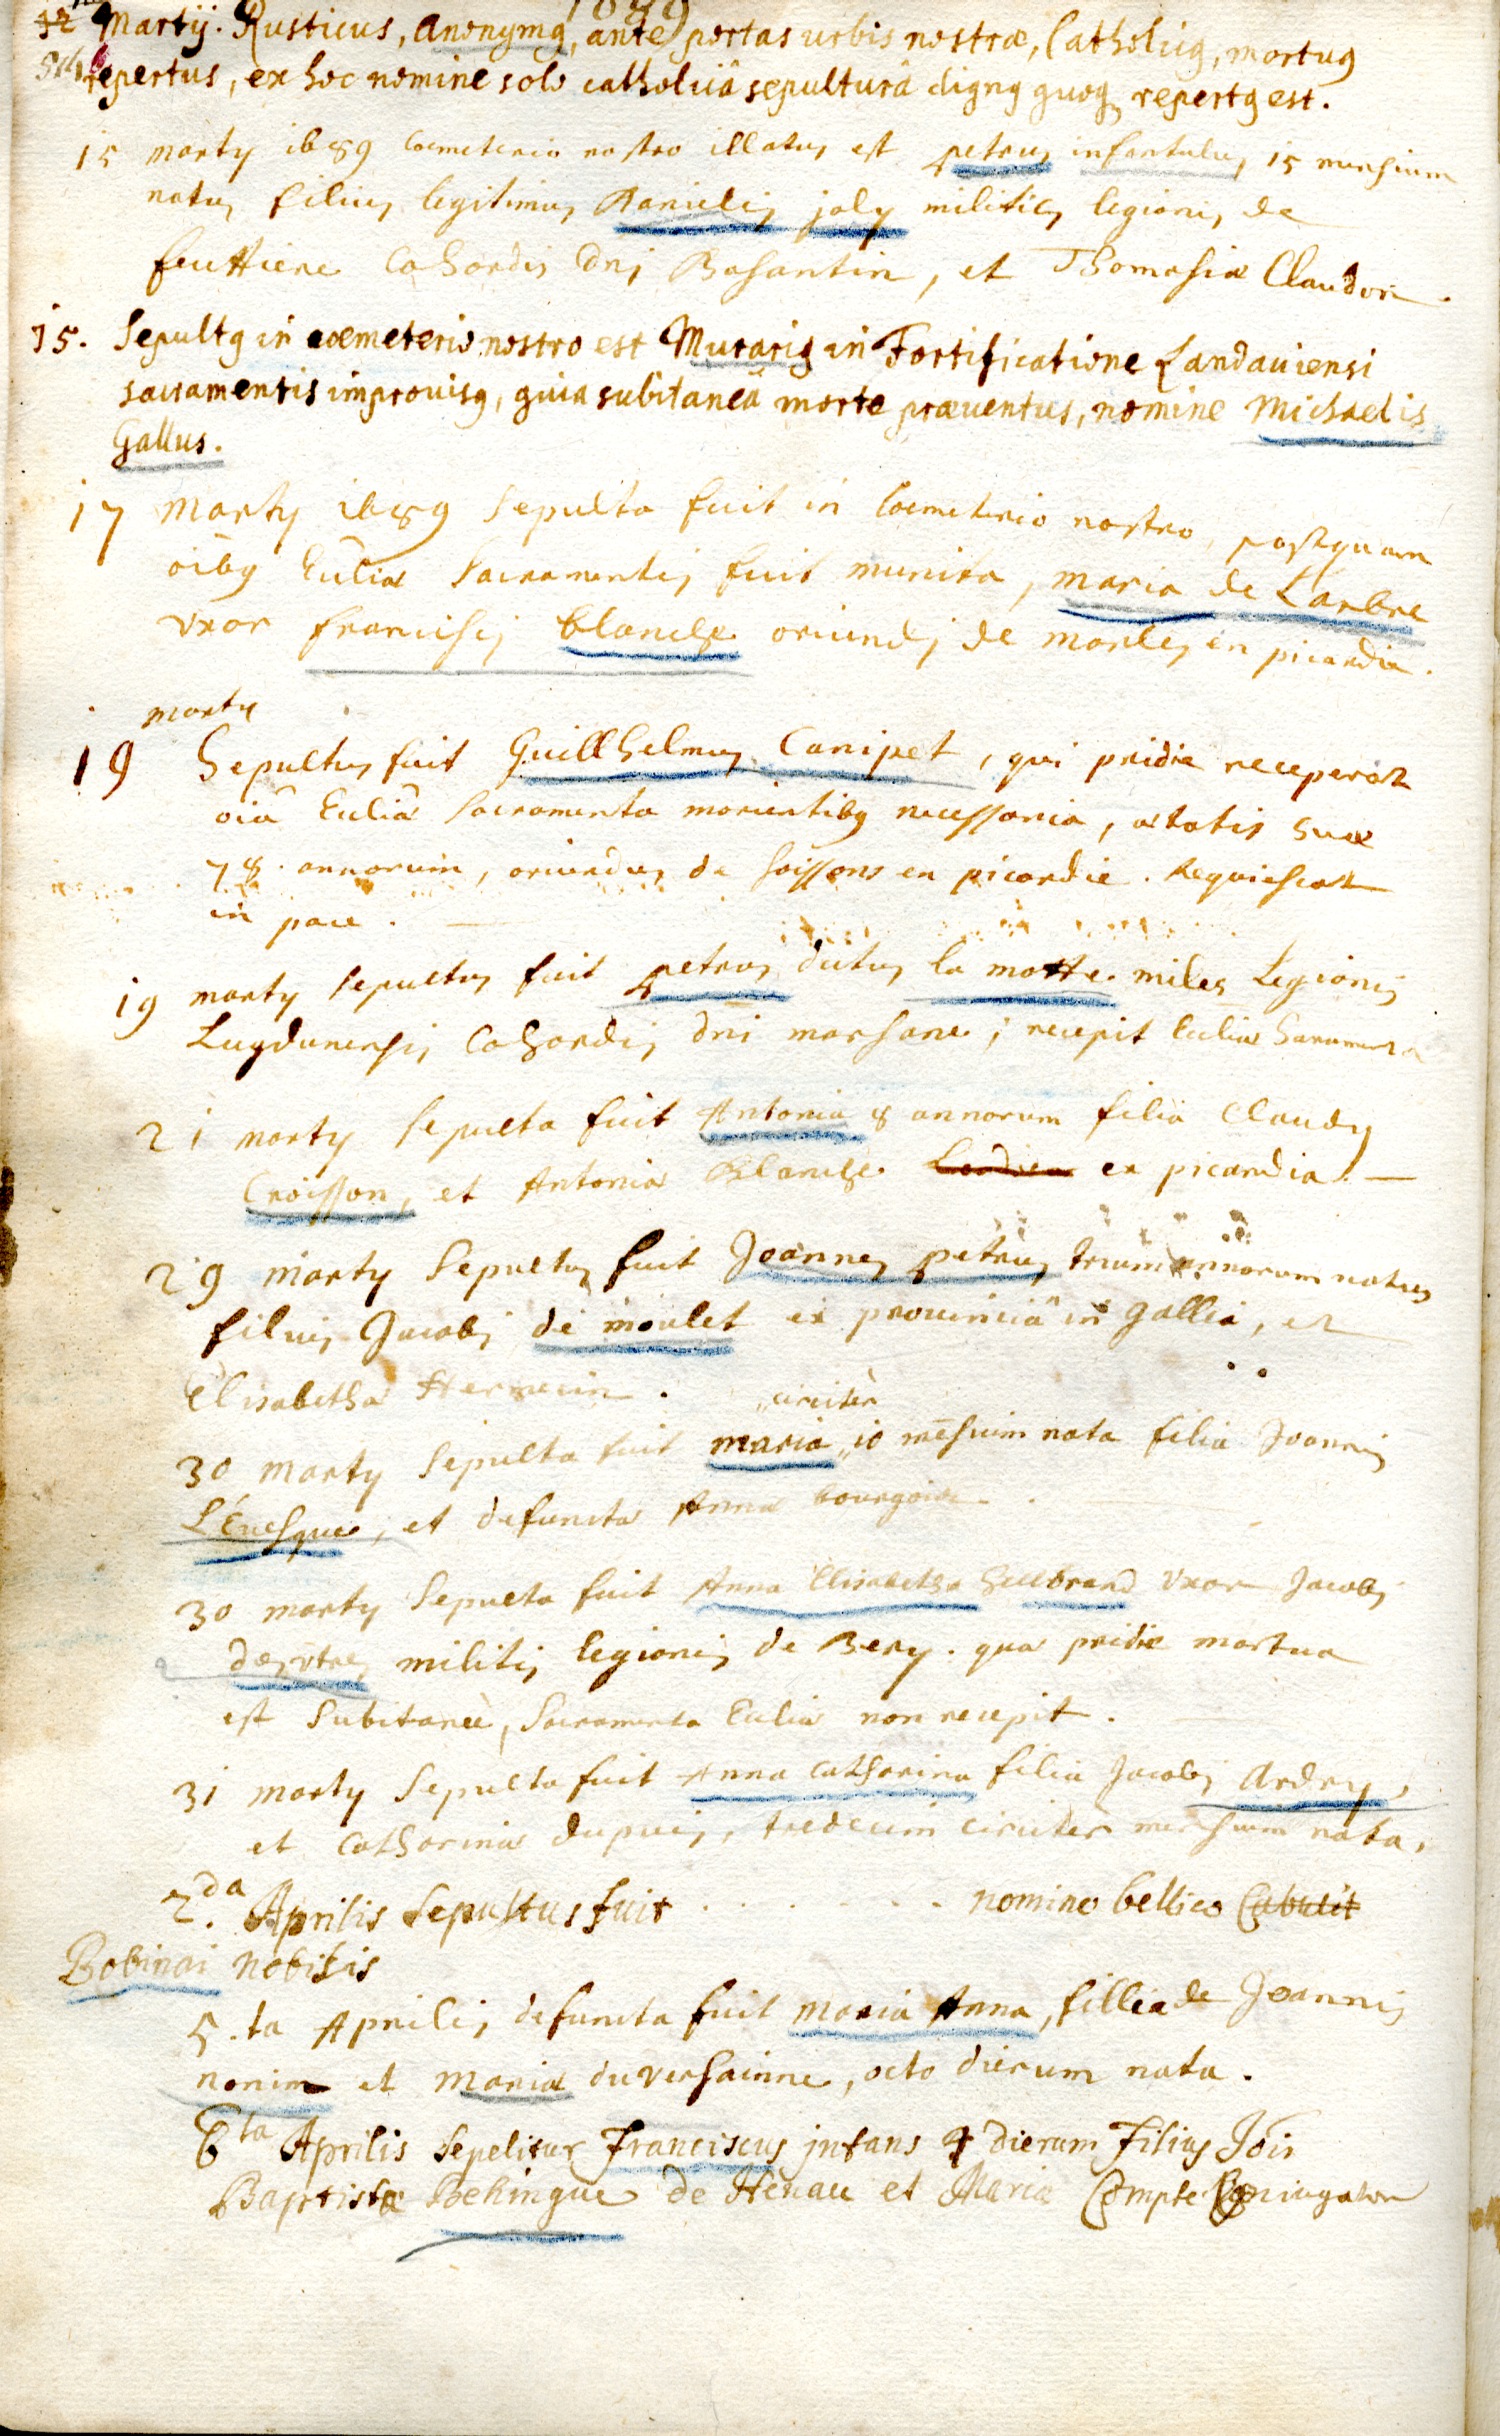 1689
12 Martij. Rusticus, Anonymq, ante portas urbis nostræ, Catholicq, mortuq
repertus, ex hoc nomine solo catholicâ sepulturâ dignq quoq repertq est.
15 marty 1689 Coemeterio nostro illatus est petrus infantulus 15 mensium
natus filius legitimus Danielis joly militis legionis de
feuttiere Cohordis Dni Basantin, et Thomasiæ Claudon.
15. Sepultq in coemeterio nostro est Murariq in Fortificatione Landaviensi
sacramentis improvisq, quia subitaneâ morte præventus, nomine Michaelis
Gallus.
17 marty 1689 Sepulta fuit in Coemeterio nostro, postquam
oibq Ecliæ Sacramentis fuit munita, maria de Larbre
vxor francisci blanche oriundi de marles en picardie.
marty
19 Sepultus fuit Guillhelmus Canipet, qui pridie receperat
oiâ Ecliâ Sacramenta morientibq necessaria, ætatis suæ
78 annorum, oriundus de soissons en picardie. Requiescat
in pace.
19 marty sepultus fuit petrus dictus la motte. miles Legionis
Lugdunensis Cohordis dni marsane; recepit Ecliæ Saramenta
21 marty sepulta fuit Antonia 8 annorum filia Claudy
Croisson, et Antoniæ Blanche ex picardia.
29 marty Sepultus fuit Joannes petrus trium annorum natus
filius Jacobi de moulet ex provinciâ in gallia, et
Elisabetha Hermecin.
circiter
30 marty Sepulta fuit maria 10 mēsium nata filia Joannis
L'Evesque, et defunctæ Annæ bourgoin.
30 marty Sepulta fuit Anna Elisabetha hilbrand vxor Jacobi
militis legionis de Bery. quæ pridie mortua
est subitaneè, Sacramenta Ecliæ non recepit.
31 marty Sepulta fuit Anna catharina filia Jacobi Ardry,
et catharinæ dupuis, tredecim circiter mensium nata.
2.da Aprilis Sepultus fuit . . . . . . . nomine bellico Cabulit
Bobinai nobilis
5.ta Aprilis defuncta fuit maria Anna, fillia de Joannis
nonim et mariæ duversainne, octo dierum nata.
6ta Aprilis Sepelitur Franciscus jnfans 4 dierum Filius Jōis
Baptistæ Behingue de Henau et Mariæ Compte Coniugatorum